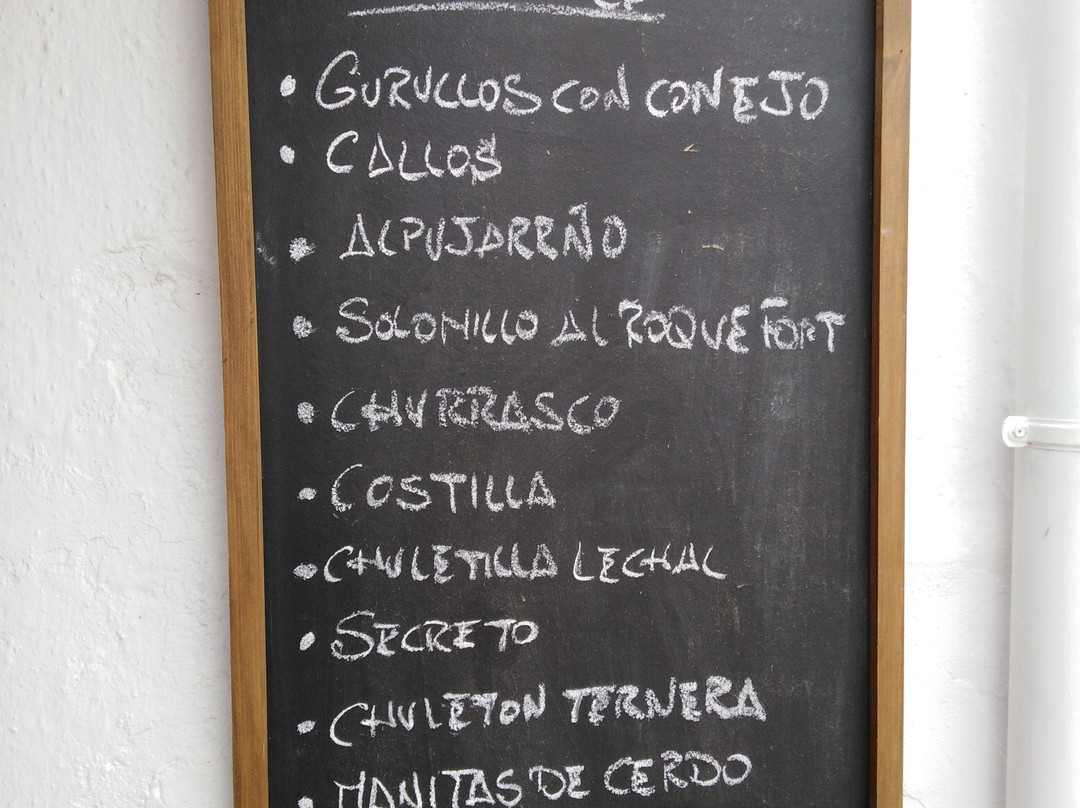 • GURULLOS CON CONEJO
• CALLOS
• ALPUJAREÑO
• SOLOMILLO AL ROQUEFORT
• CHURRASCO
• COSTILLA
• CHULETILLA LECHAL
• SECRETO
• CHULETON TERNERA
• MANITAS DE CERDO